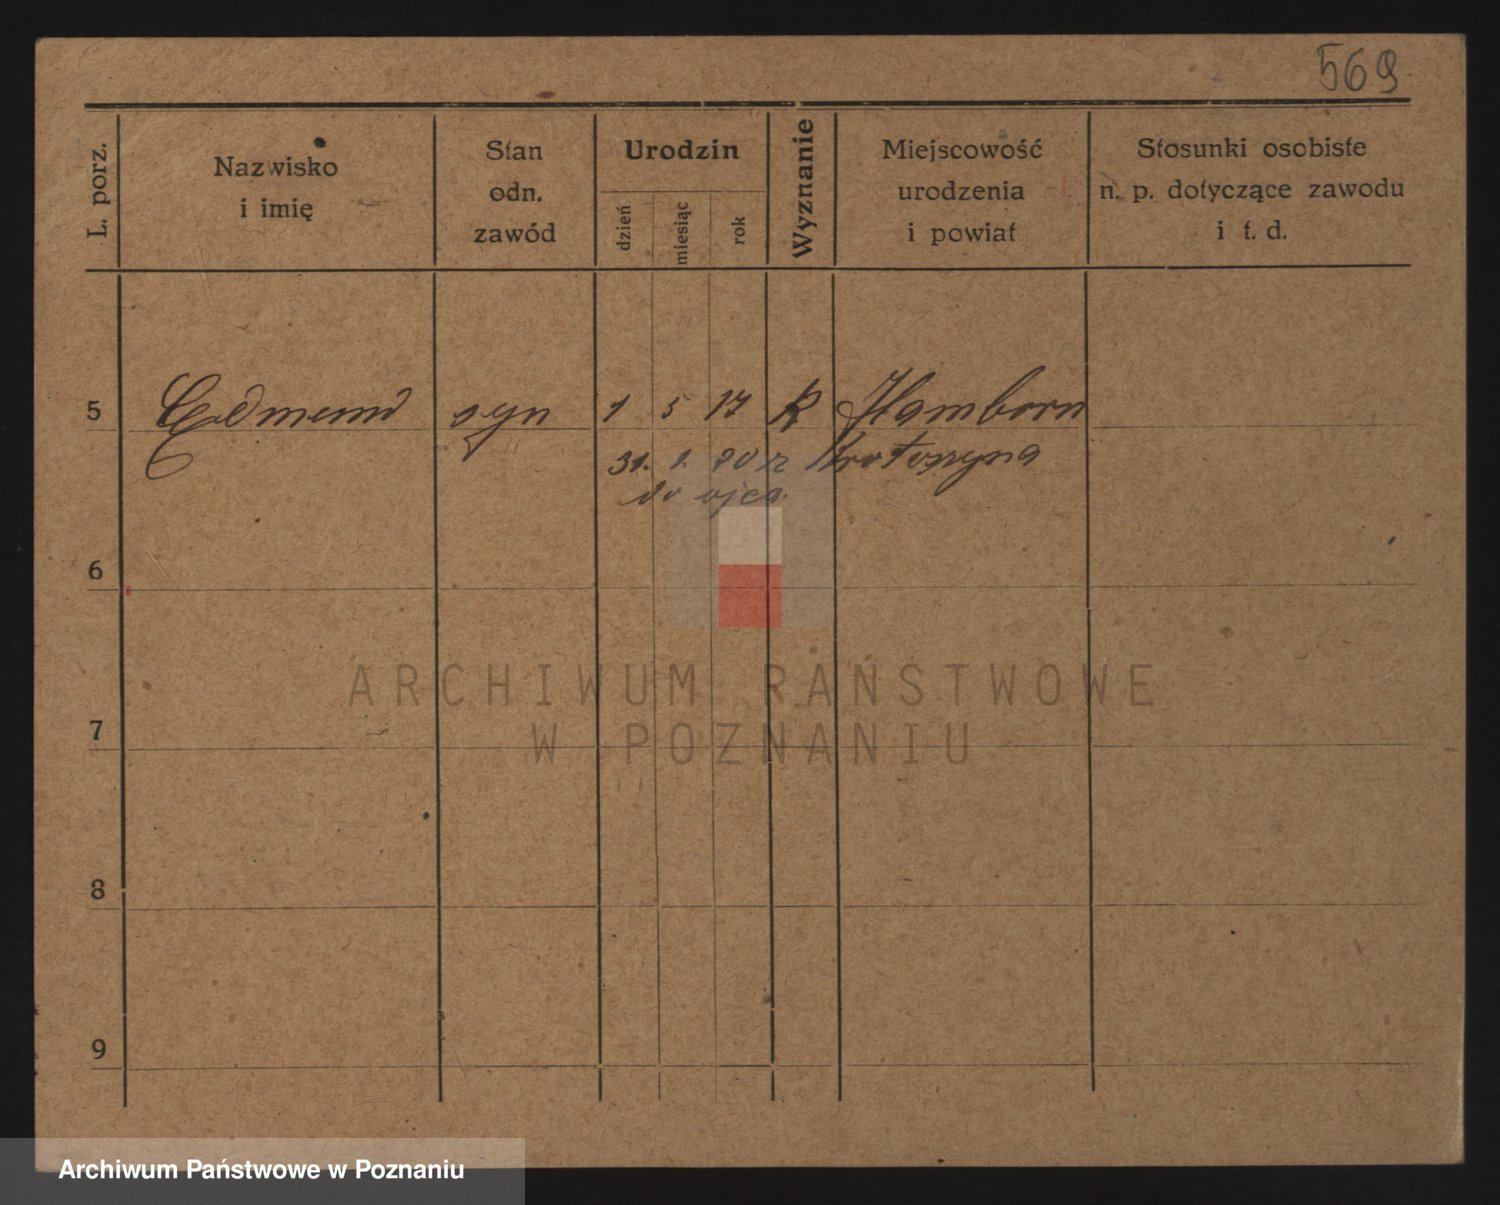 569
L. porz.
Nazwisko
i imię
Stan
odn.
zawód
Urodzin
dzień
miesiąc
rok
Wyznanie
Miejscowość
urodzenia
i powiat
Stosunki osobiste
n. p. dotyczące zawodu
i t. d.
5 Edmund syn 1 5 17 K Hamborn
31. 1. 20 z Krotoszyna
do ojca
6
7
8
9
ARCHIWUM PAŃSTWOWE
W POZNANIU
Archiwum Państwowe w Poznaniu